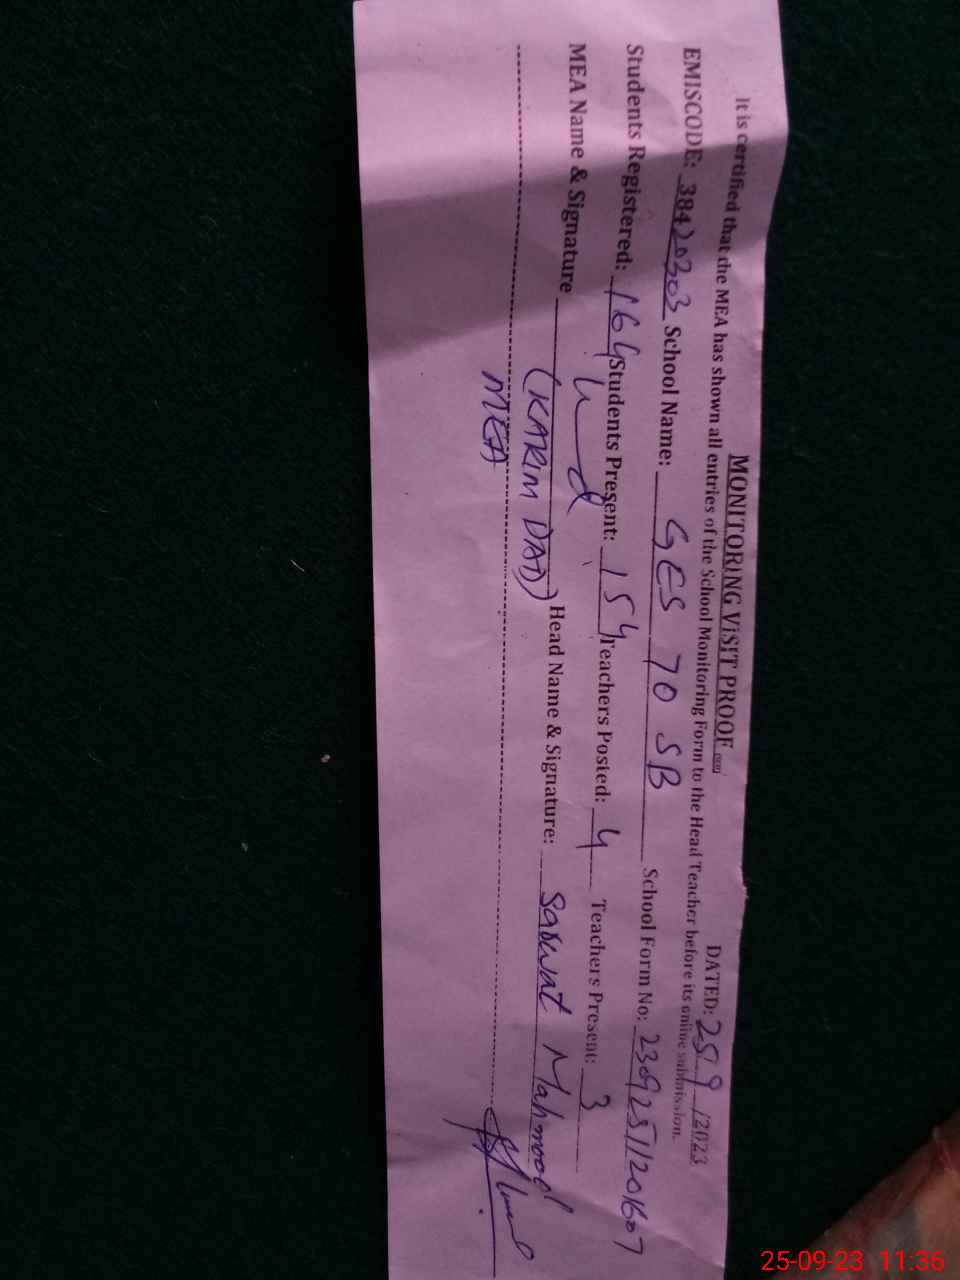 MONITORING VISIT PROOF
DATED: 25/9/2023
It is certified that the MEA has shown all entries of the School Monitoring Form to the Head Teacher before its online submission.
EMISCODE: 38420303 School Name: GES 70 SB School Form No: 23092511201607
Students Registered: 164 Students Present: 154 Teachers Posted: 4 Teachers Present: 3
MEA Name & Signature (KARIM DAD) Head Name & Signature: Sarwat Mahmood
MEA
25-09-23 11:36